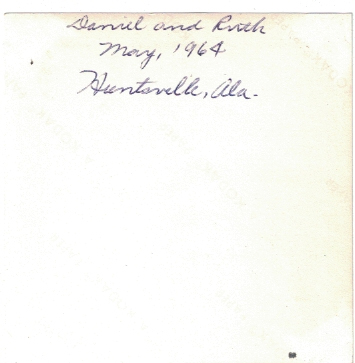 Daniel and Ruth
May, 1964
Huntsville, Ala.